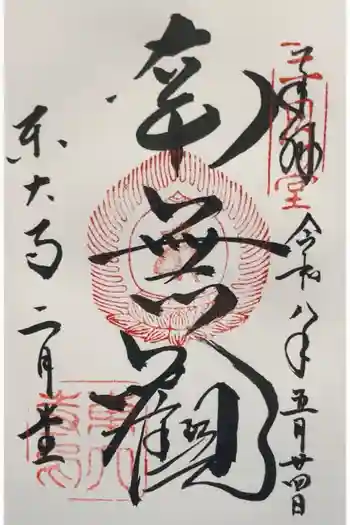 奉拝
令和八年五月廿四日
南無観
東大寺 二月堂